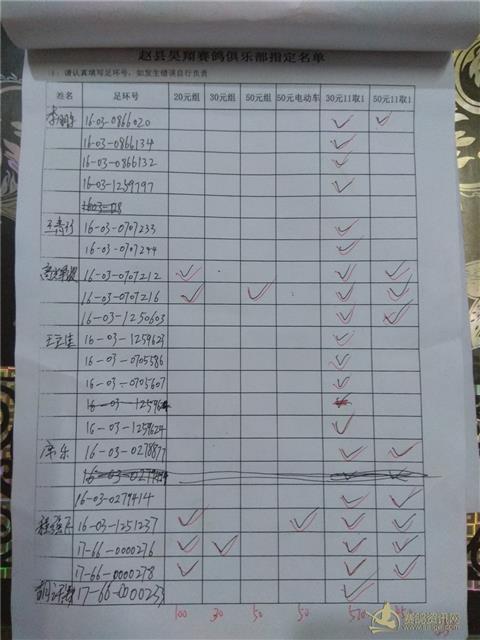 赵县昊翔赛鸽俱乐部指定名单
1、请认真填写足环号，如发生错误自行负责
姓名 足环号 20元组 30元组 50元组 50元电动车 30元11取1 50元11取1
16-03-0866020 ✓ ✓
16-03-0866134 ✓
16-03-0866132 ✓
16-03-1259797 ✓
16-03-0707233 ✓
16-03-0707244 ✓
16-03-0707212 ✓ ✓ ✓
16-03-0707216 ✓ ✓ ✓ ✓
16-03-1250603 ✓ ✓
16-03-1259627 ✓
16-03-0705586 ✓
16-03-0705607 ✓
16-03-1259624 ✓
16-03-0278877 ✓ ✓
16-03-0279414 ✓ ✓
16-03-1251237 ✓ ✓ ✓ ✓
17-66-0000276 ✓ ✓ ✓ ✓
17-66-0000278 ✓ ✓ ✓
17-66-0000233 ✓
100 30 50 50 570
赛鸽资讯网